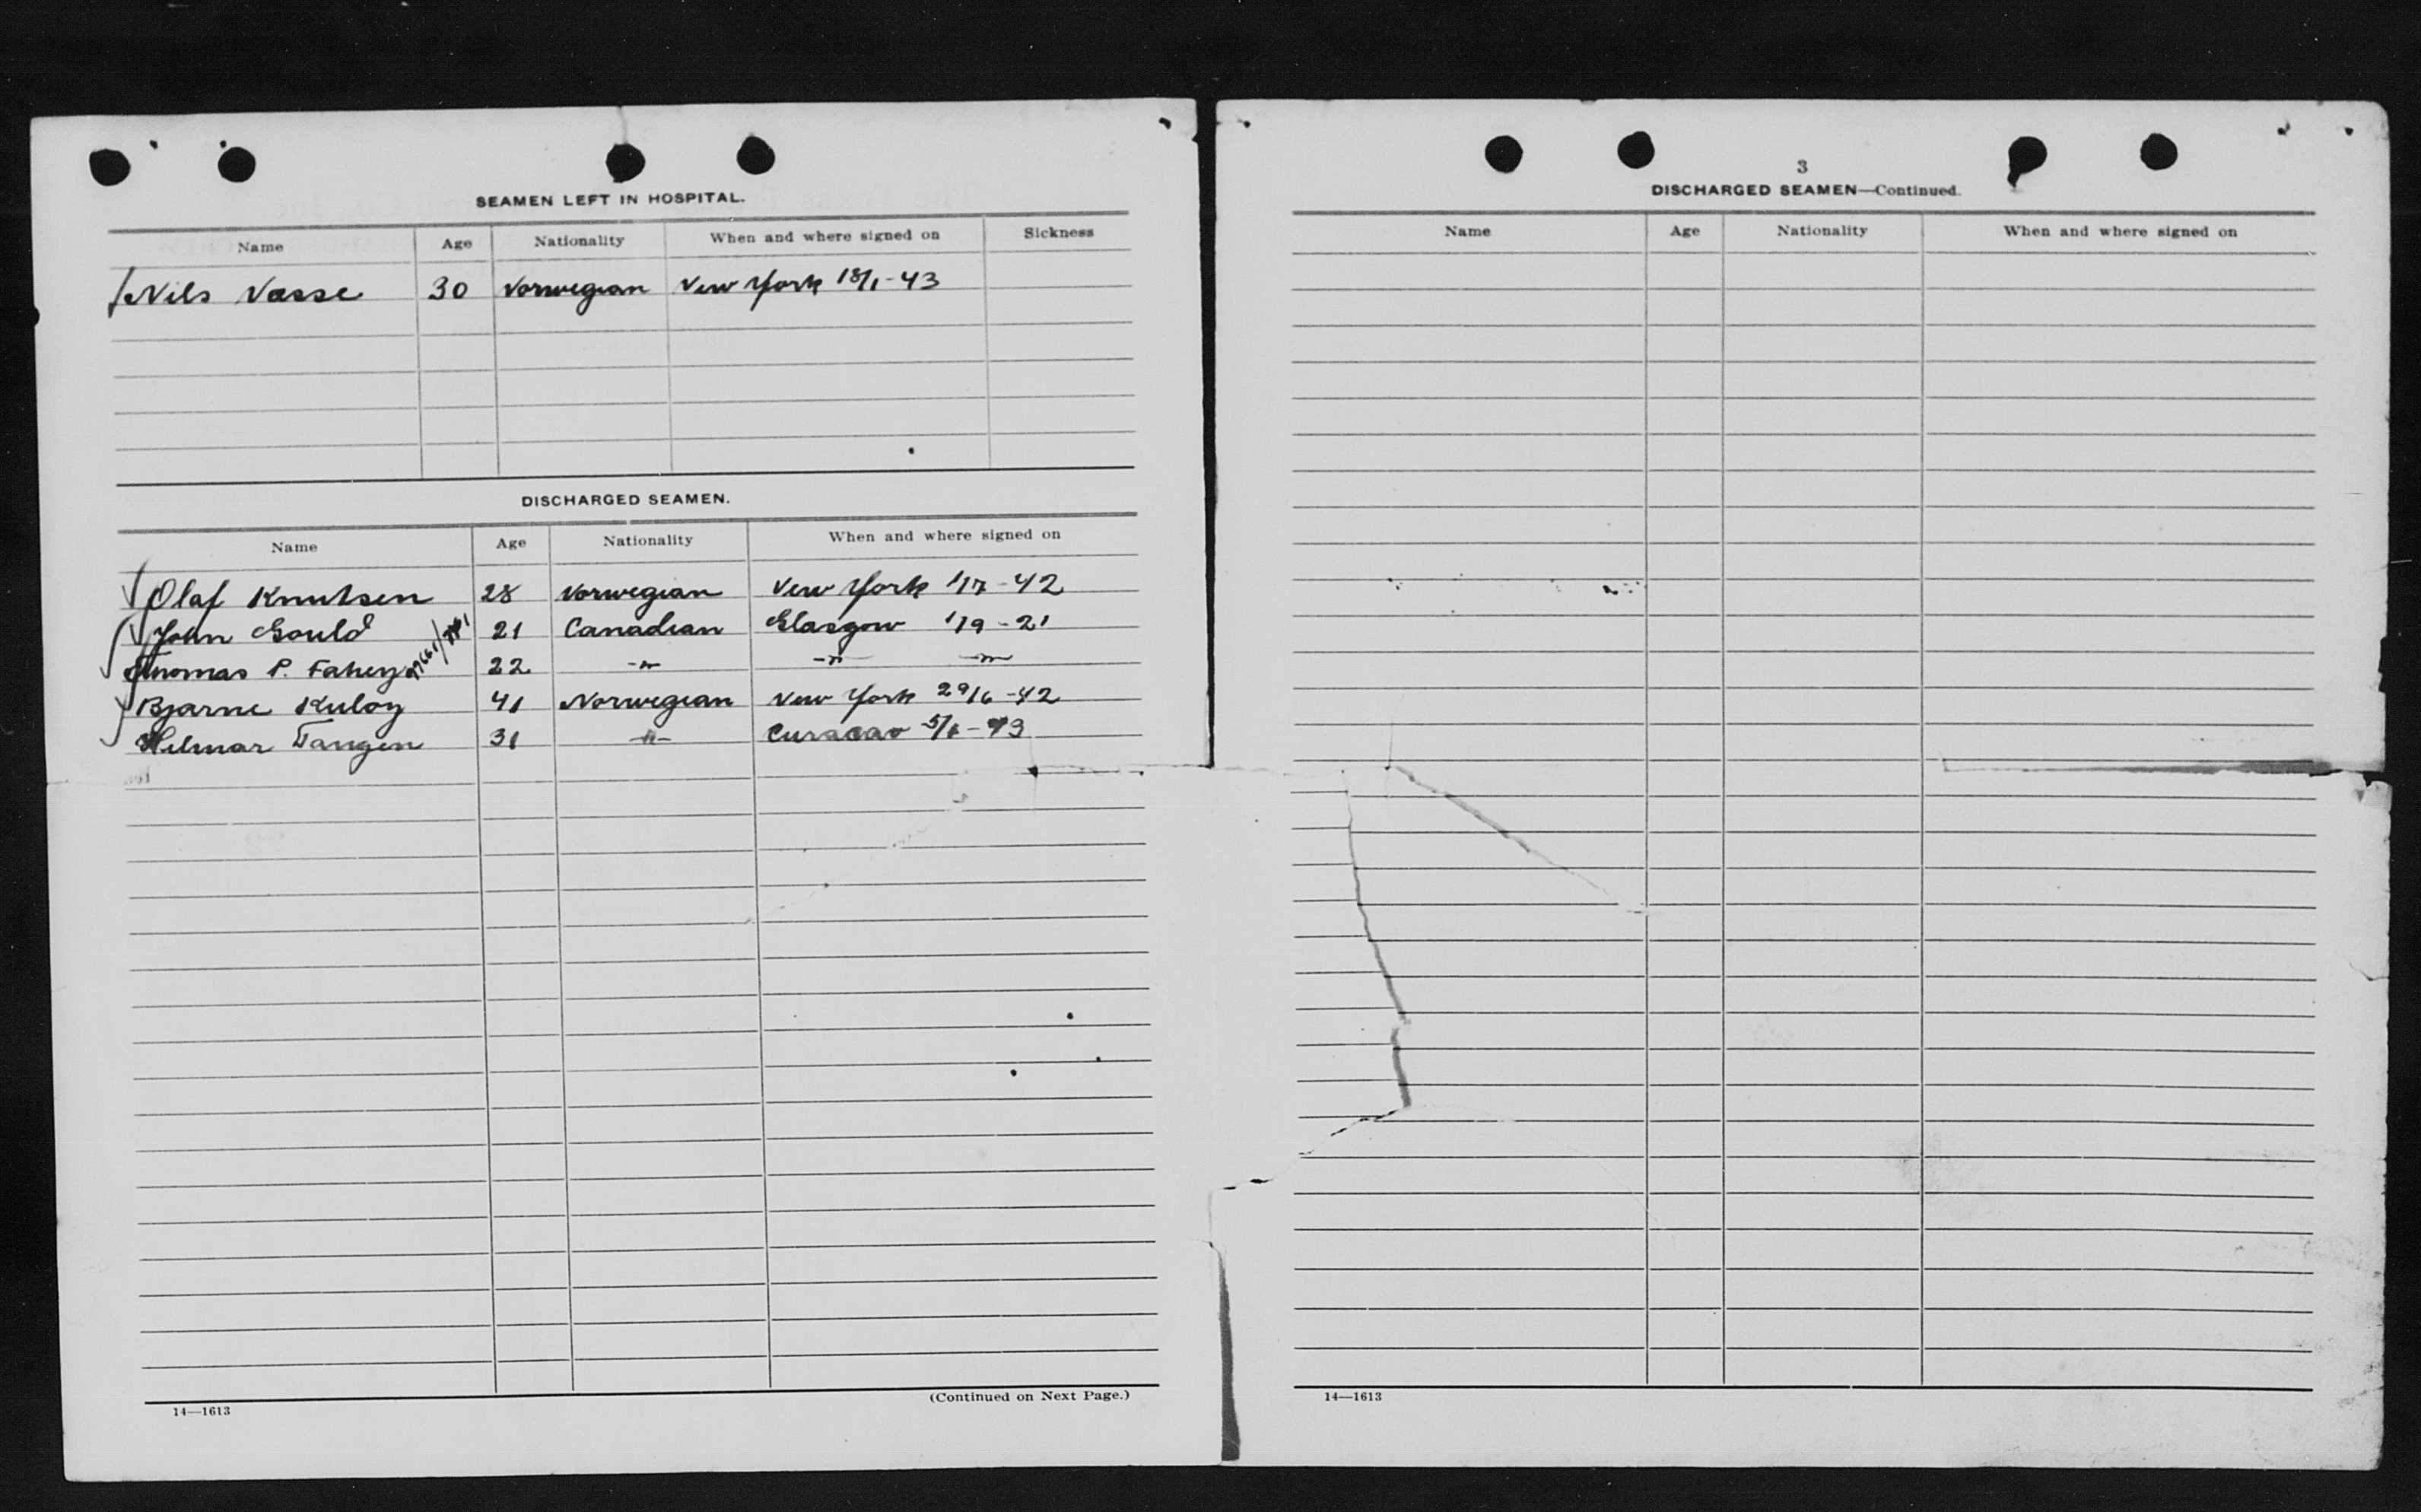 SEAMEN LEFT IN HOSPITAL.
Name Age Nationality When and where signed on Sickness
Nils Vasse 30 Norwegian New York 18/1-43
DISCHARGED SEAMEN.
Name Age Nationality When and where signed on
Olaf Knutsen 28 Norwegian New York 1/17-42
John Gould 21 Canadian Glasgow 1/9-21
Thomas P. Fahey 22 -"- -"- -"-
Bjarne Kuloy 41 Norwegian New York 29/6-42
Hilmar Tangen 31 -"- Curacao
(Continued on Next Page.)
14—1613
3
DISCHARGED SEAMEN—Continued.
Name Age Nationality When and where signed on
14—1613